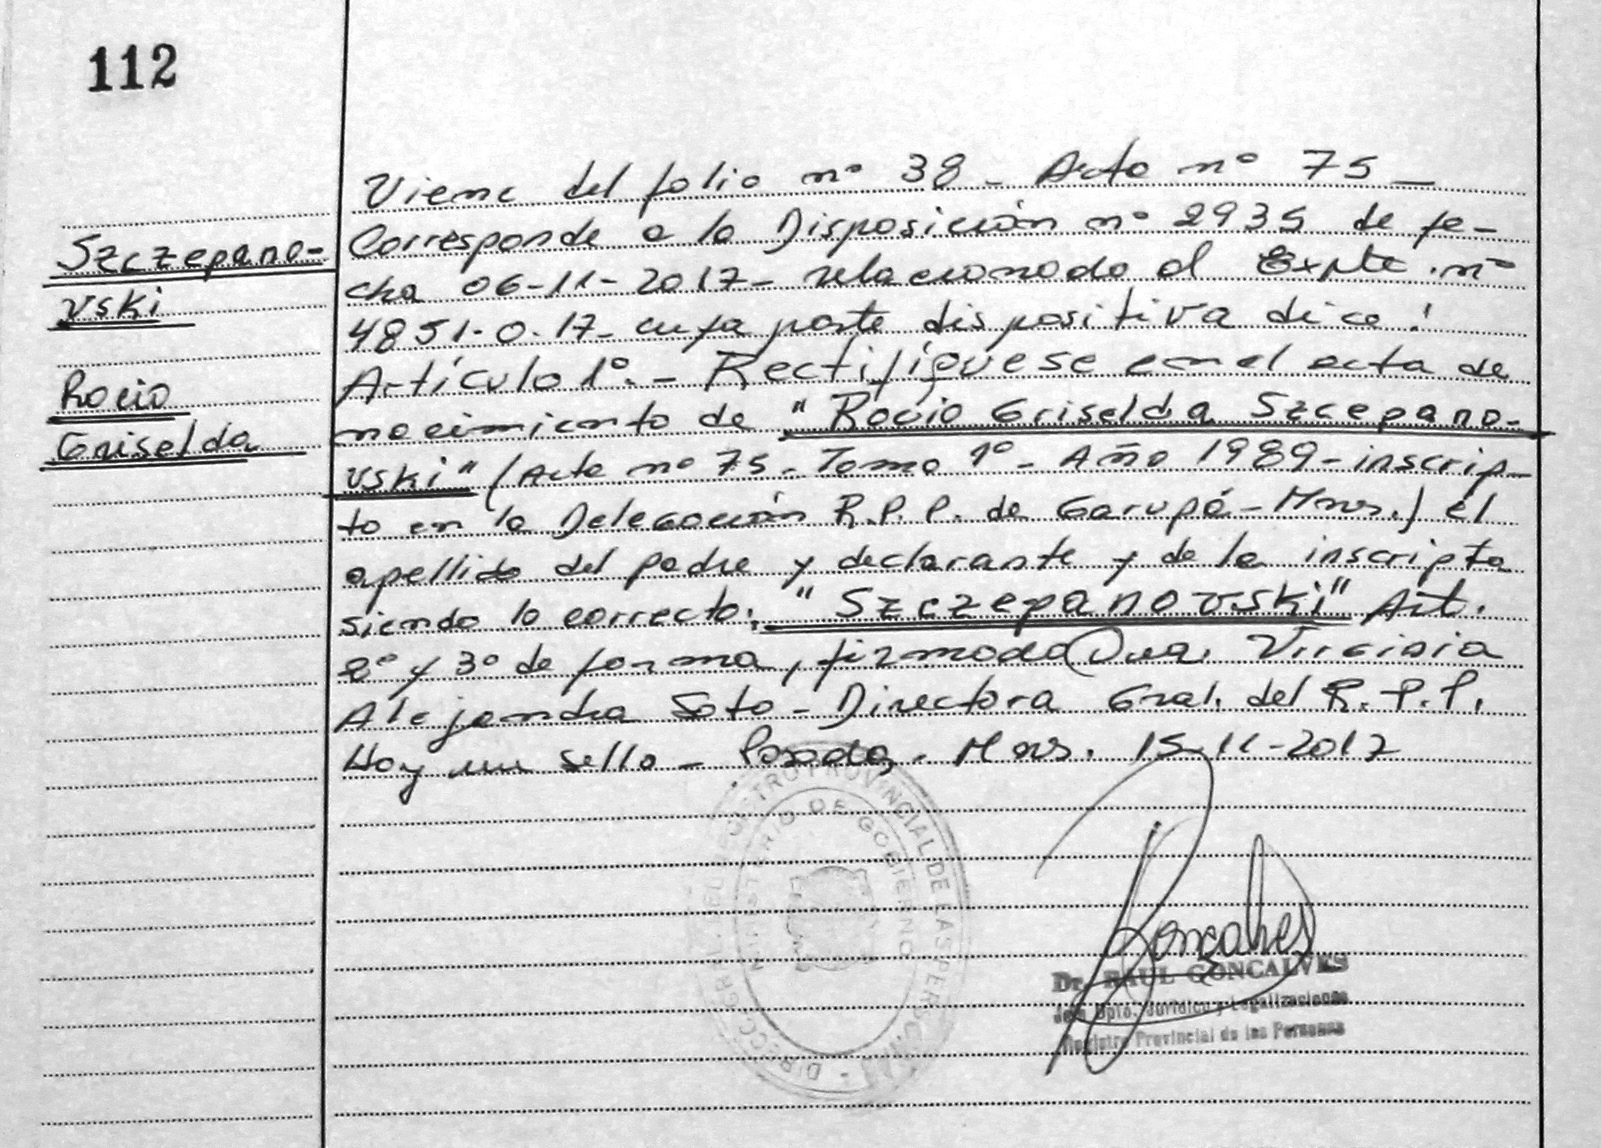 112
Szczepano-
vski
Rocio
Griselda
Viene del folio nº 38 - Acta nº 75 -
Corresponde a la Disposición nº 2935 de fe-
cha 06-11-2017 - relacionado al Expte. nº
4851-0-17 - cuya parte dispositiva dice:
Artículo 1º.- Rectifíquese en el acta de
nacimiento de "Rocio Griselda Szcepano-
vski" (Acta nº 75 - Tomo 1º - Año 1989 - inscrip-
to en la Delegación R.P.P. de Garupá - Mnes.) el
apellido del padre y declarante y de la inscripta
siendo lo correcto: "Szczepanovski" Art.
2º y 3º de forma, firmado Dra. Virginia
Alejandra Soto - Directora Gral. del R.P.P.
Hay un sello - Posadas, Mnes. 15-11-2017
DIRECC. GRAL. DEL REGISTRO PROVINCIAL DE LAS PERSONAS
MINISTERIO DE GOBIERNO
Gonçalves
Dr. RAUL GONCALVES
Jefe Dpto. Jurídico y Legalizaciones
Registro Provincial de las Personas